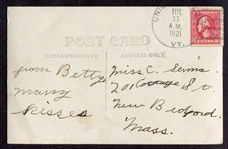 JUL
13
A.M.
1921
VT.
POST CARD
CORRESPONDENCE
ADDRESS ONLY.
from Betty
Many
Kisses
Miss C.
201 Cottage St.
New Bedford.
Mass.